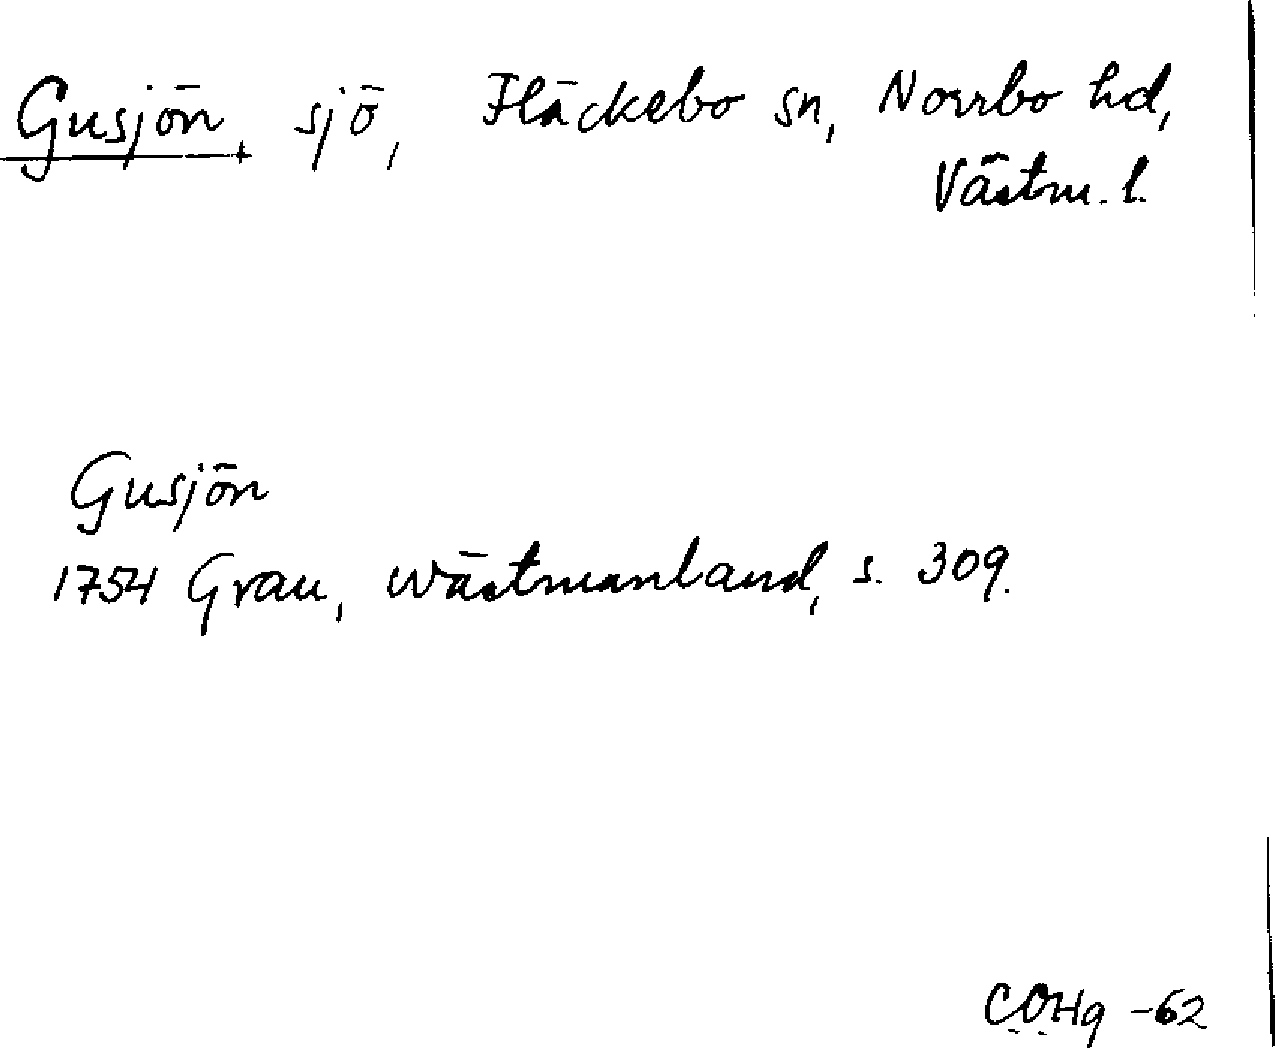 Gusjön, sjö, Fläckebo sn, Norrbo hd,
Västm. l.
Gusjön
1754 Grau, Wästmanland, s. 309.
COHg -62